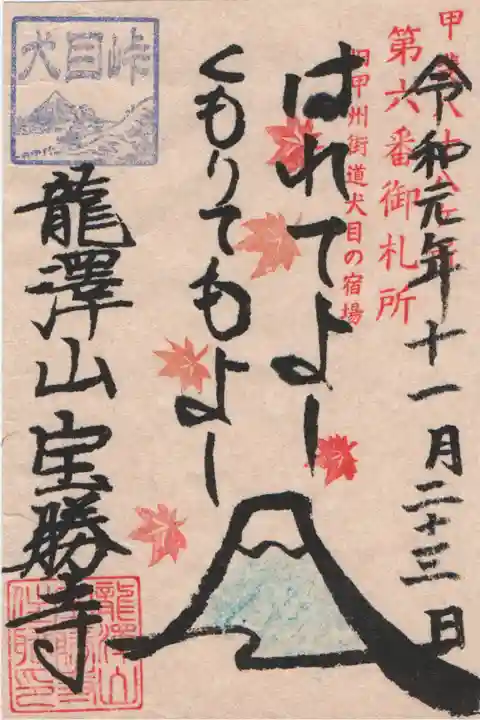 令和元年十一月二十三日
第六番御札所
旧甲州街道犬目の宿場
はれてよし
くもりてもよし
犬目峠
龍澤山宝勝寺
龍澤山